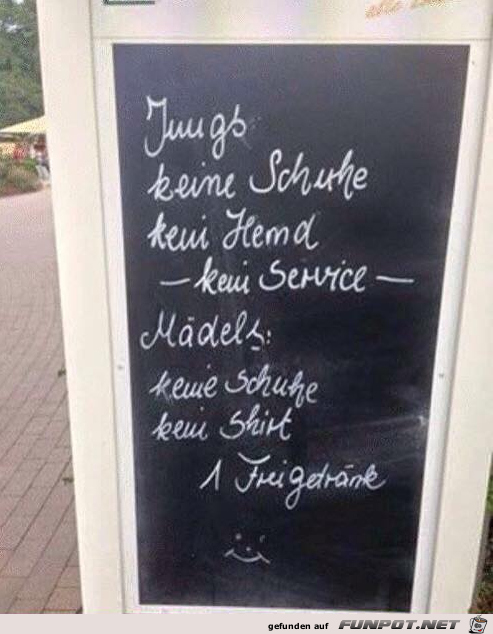 Jungs:
keine Schuhe
kein Hemd
— kein Service —
Mädels:
keine Schuhe
kein Shirt
1 Freigetränk
gefunden auf FUNPOT.NET